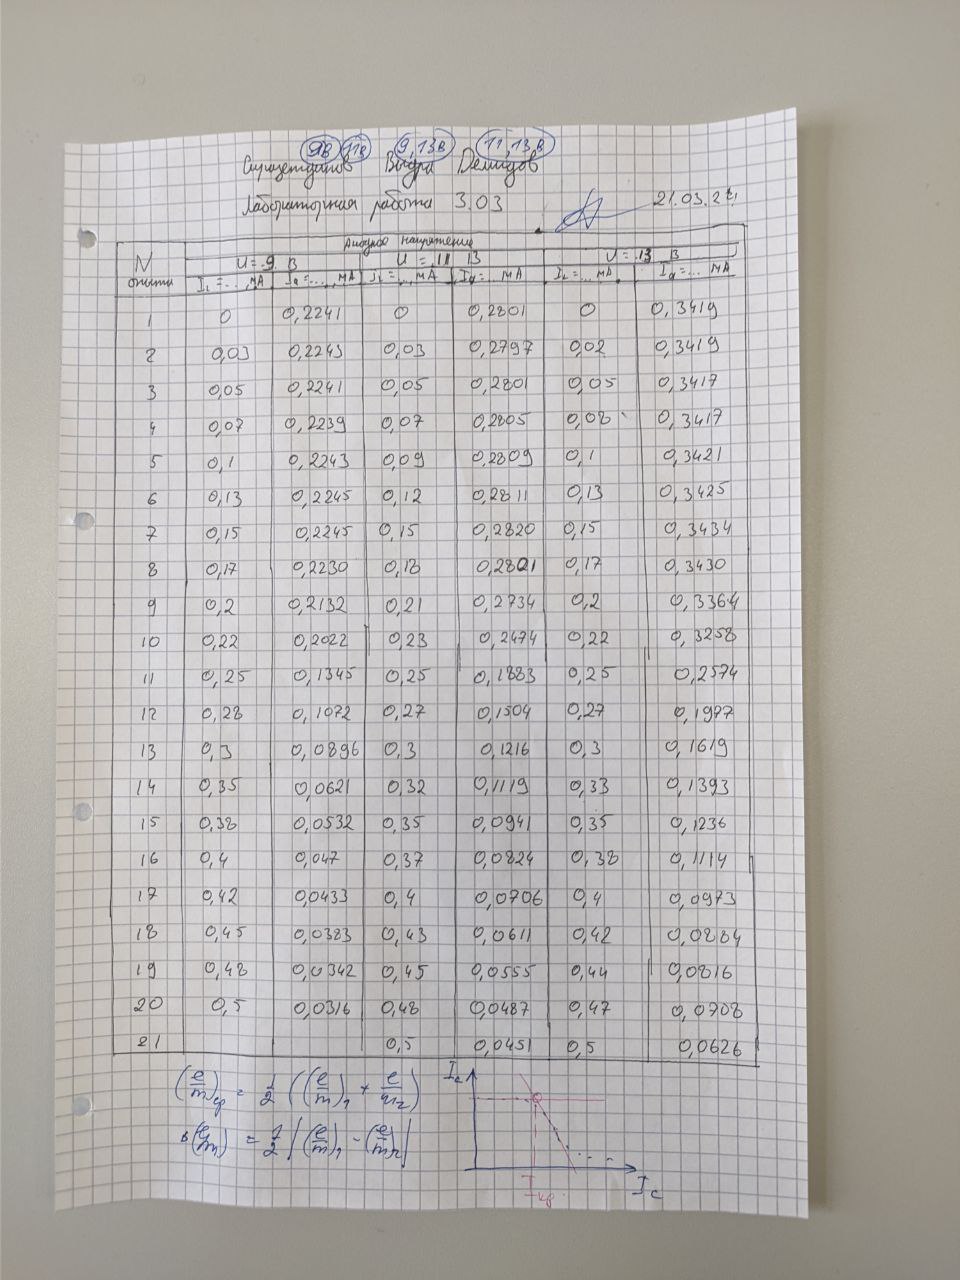 9В 11В 9,13В 11,13В
Сиразетдинов Выдра Демидов
Лабораторная работа 3.03 21.03.24
Анодное напряжение
N опыта U = 9 В U = 11 В U = 13 В
I_L = ..., мА I_a = ..., мА I_L = ..., мА I_a = ... мА I_L = ... мА I_a = ... мА
1 0 0,2241 0 0,2801 0 0,3419
2 0,03 0,2243 0,03 0,2797 0,02 0,3419
3 0,05 0,2241 0,05 0,2801 0,05 0,3417
4 0,07 0,2239 0,07 0,2805 0,08 0,3417
5 0,1 0,2243 0,09 0,2809 0,1 0,3421
6 0,13 0,2245 0,12 0,2811 0,13 0,3425
7 0,15 0,2245 0,15 0,2820 0,15 0,3434
8 0,17 0,2230 0,18 0,2801 0,17 0,3430
9 0,2 0,2132 0,21 0,2734 0,2 0,3364
10 0,22 0,2022 0,23 0,2474 0,22 0,3258
11 0,25 0,1345 0,25 0,1883 0,25 0,2574
12 0,28 0,1072 0,27 0,1504 0,27 0,1977
13 0,3 0,0896 0,3 0,1216 0,3 0,1619
14 0,35 0,0621 0,32 0,1119 0,33 0,1393
15 0,38 0,0532 0,35 0,0941 0,35 0,1236
16 0,4 0,047 0,37 0,0824 0,38 0,1114
17 0,42 0,0433 0,4 0,0706 0,4 0,0973
18 0,45 0,0383 0,43 0,0611 0,42 0,0884
19 0,48 0,0342 0,45 0,0555 0,44 0,0816
20 0,5 0,0316 0,48 0,0487 0,47 0,0708
21 0,5 0,0451 0,5 0,0626
(e/m)ср = 1/2 ((e/m)₁ + e/m₂)
Δ(e/m) = 1/2 |(e/m)₁ - (e/m)₂|
Iₐ
Iкр.
I_c